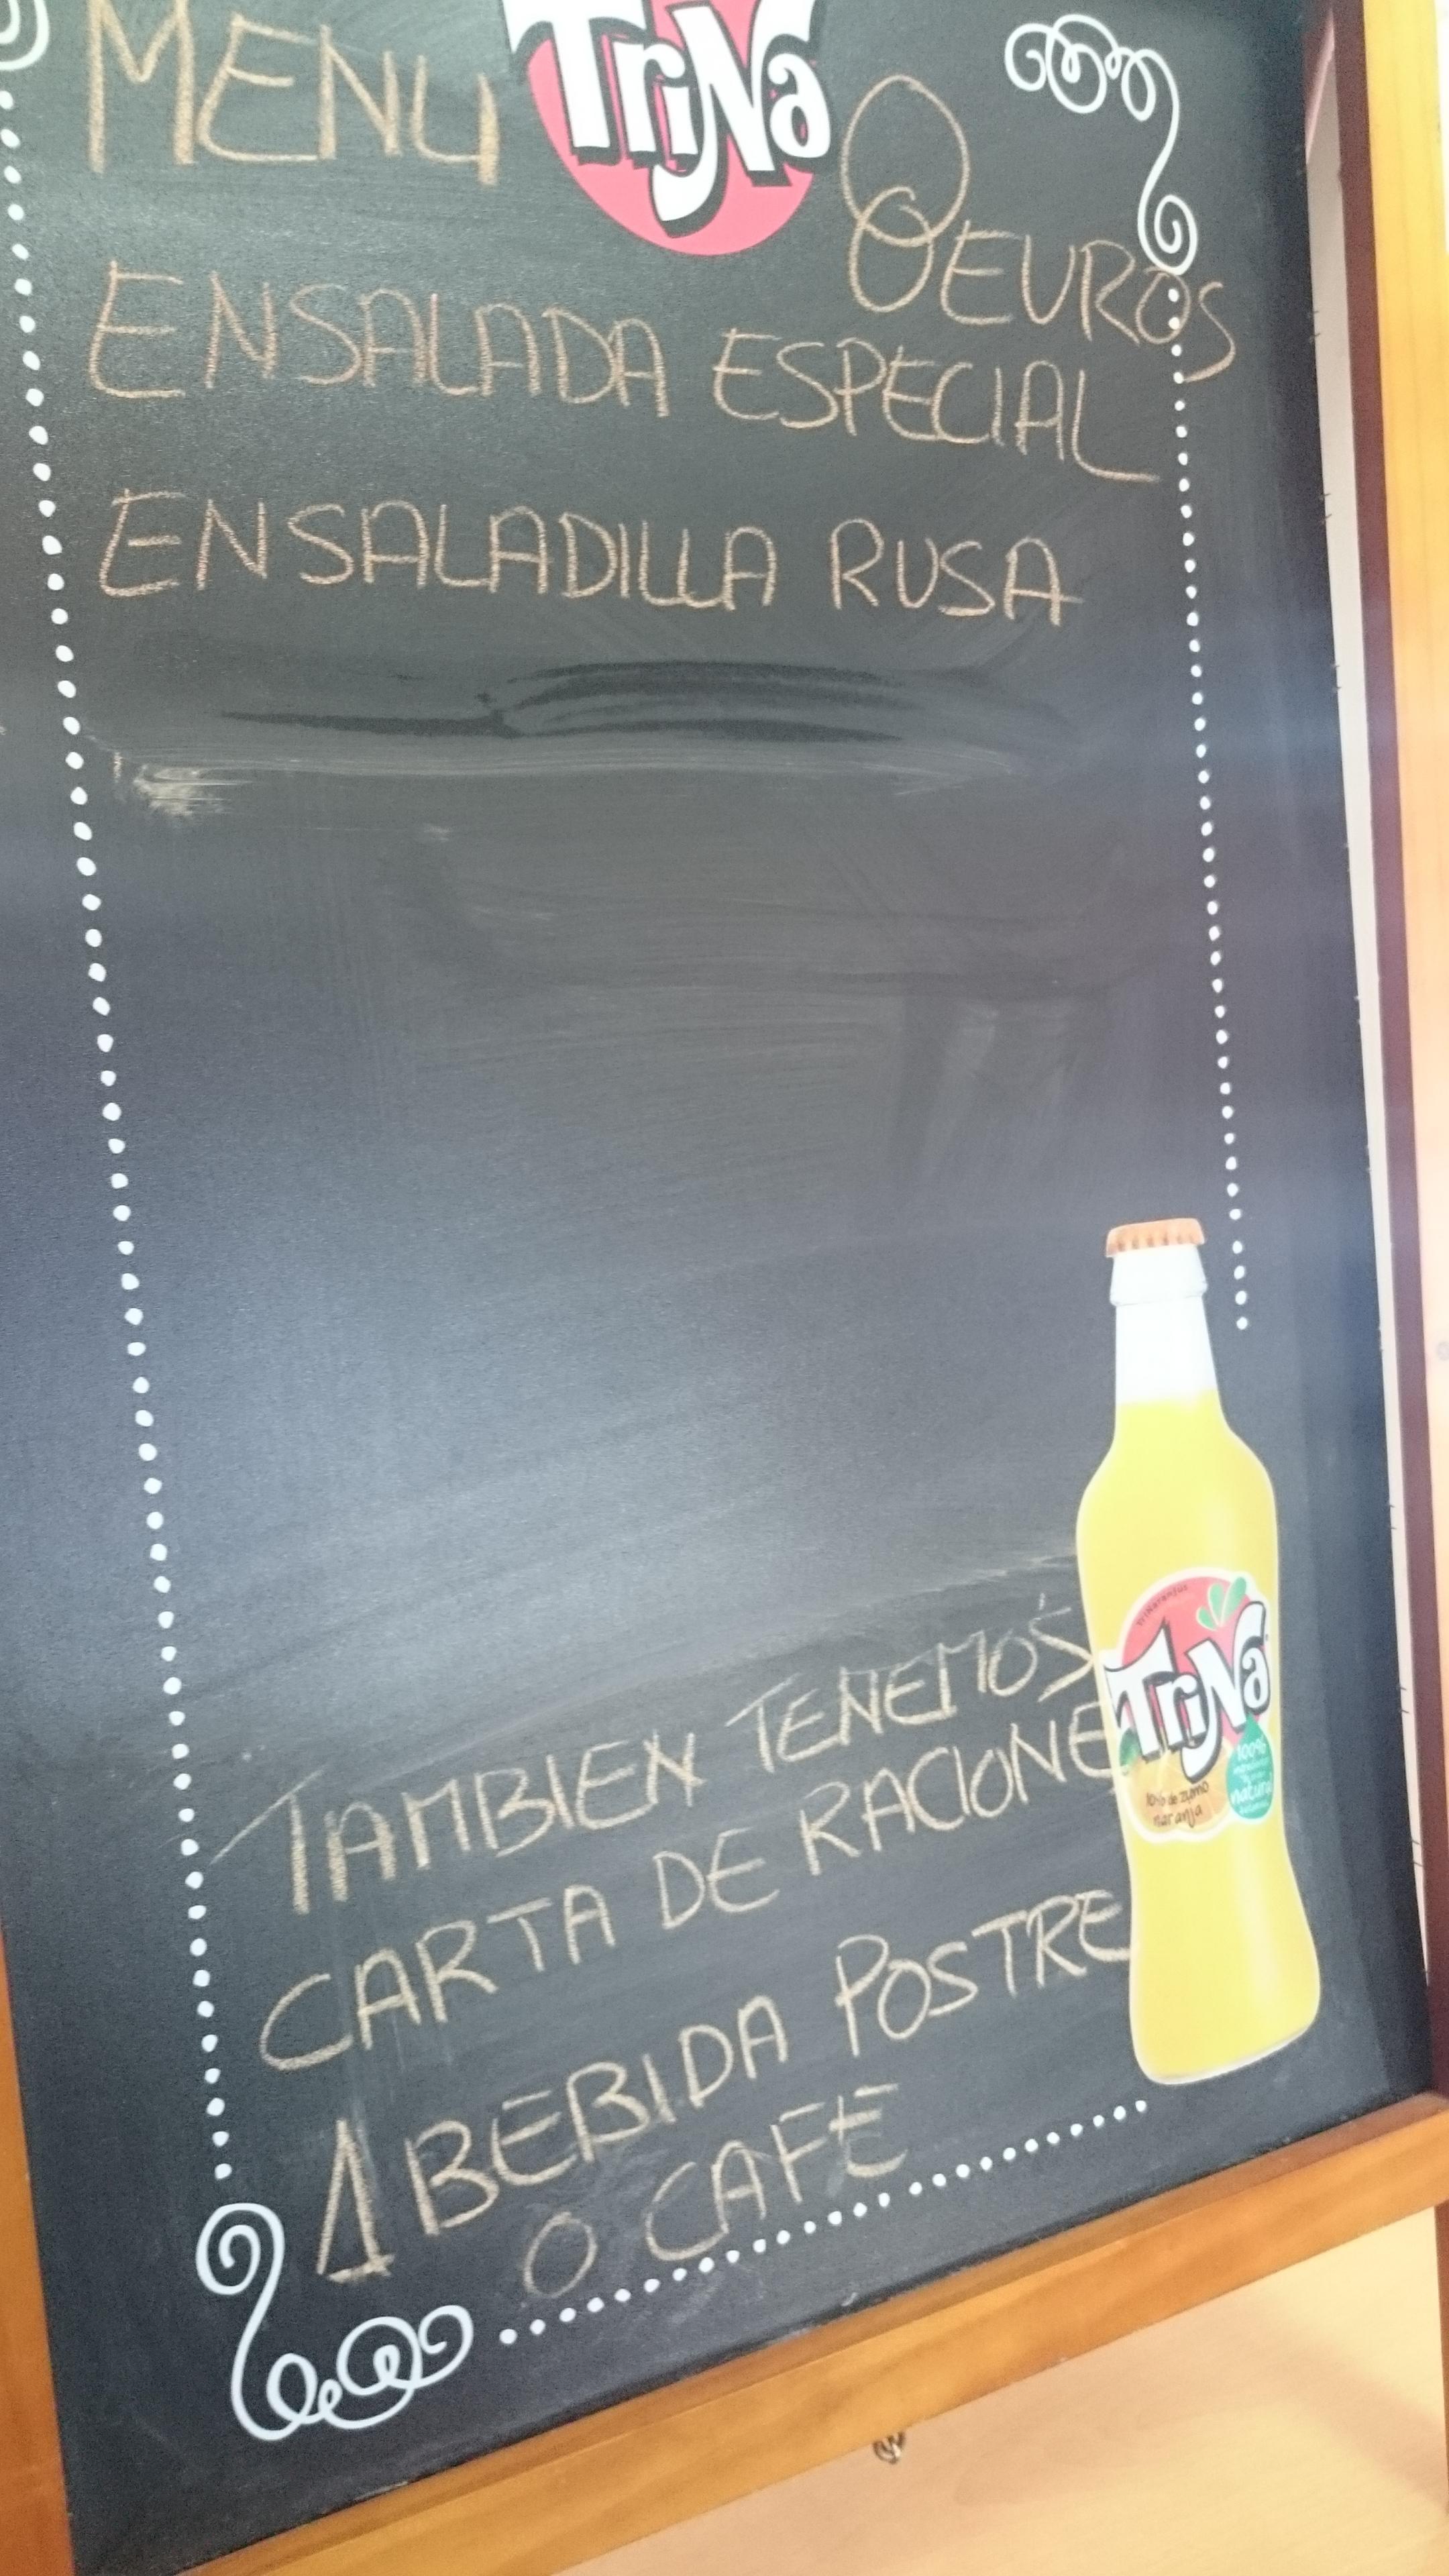 MENU
TriNa
8 EUROS
ENSALADA ESPECIAL
ENSALADILLA RUSA
TAMBIEN TENEMOS
CARTA DE RACIONE
1 BEBIDA POSTRE
O CAFE
TriNaranjus
TriNa
100%
natural
10% de zumo
naranja